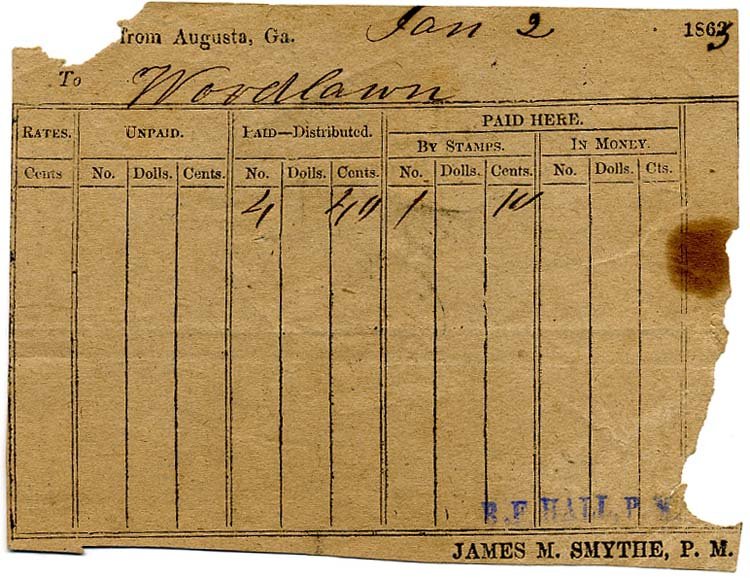 from Augusta, Ga. Jan 2 1863
To Woodlawn
PAID HERE.
RATES. UNPAID. PAID—Distributed. BY STAMPS. IN MONEY.
Cents No. Dolls. Cents. No. Dolls. Cents. No. Dolls. Cents. No. Dolls. Cts.
4 40 1 10
HALL. P.
JAMES M. SMYTHE, P. M.